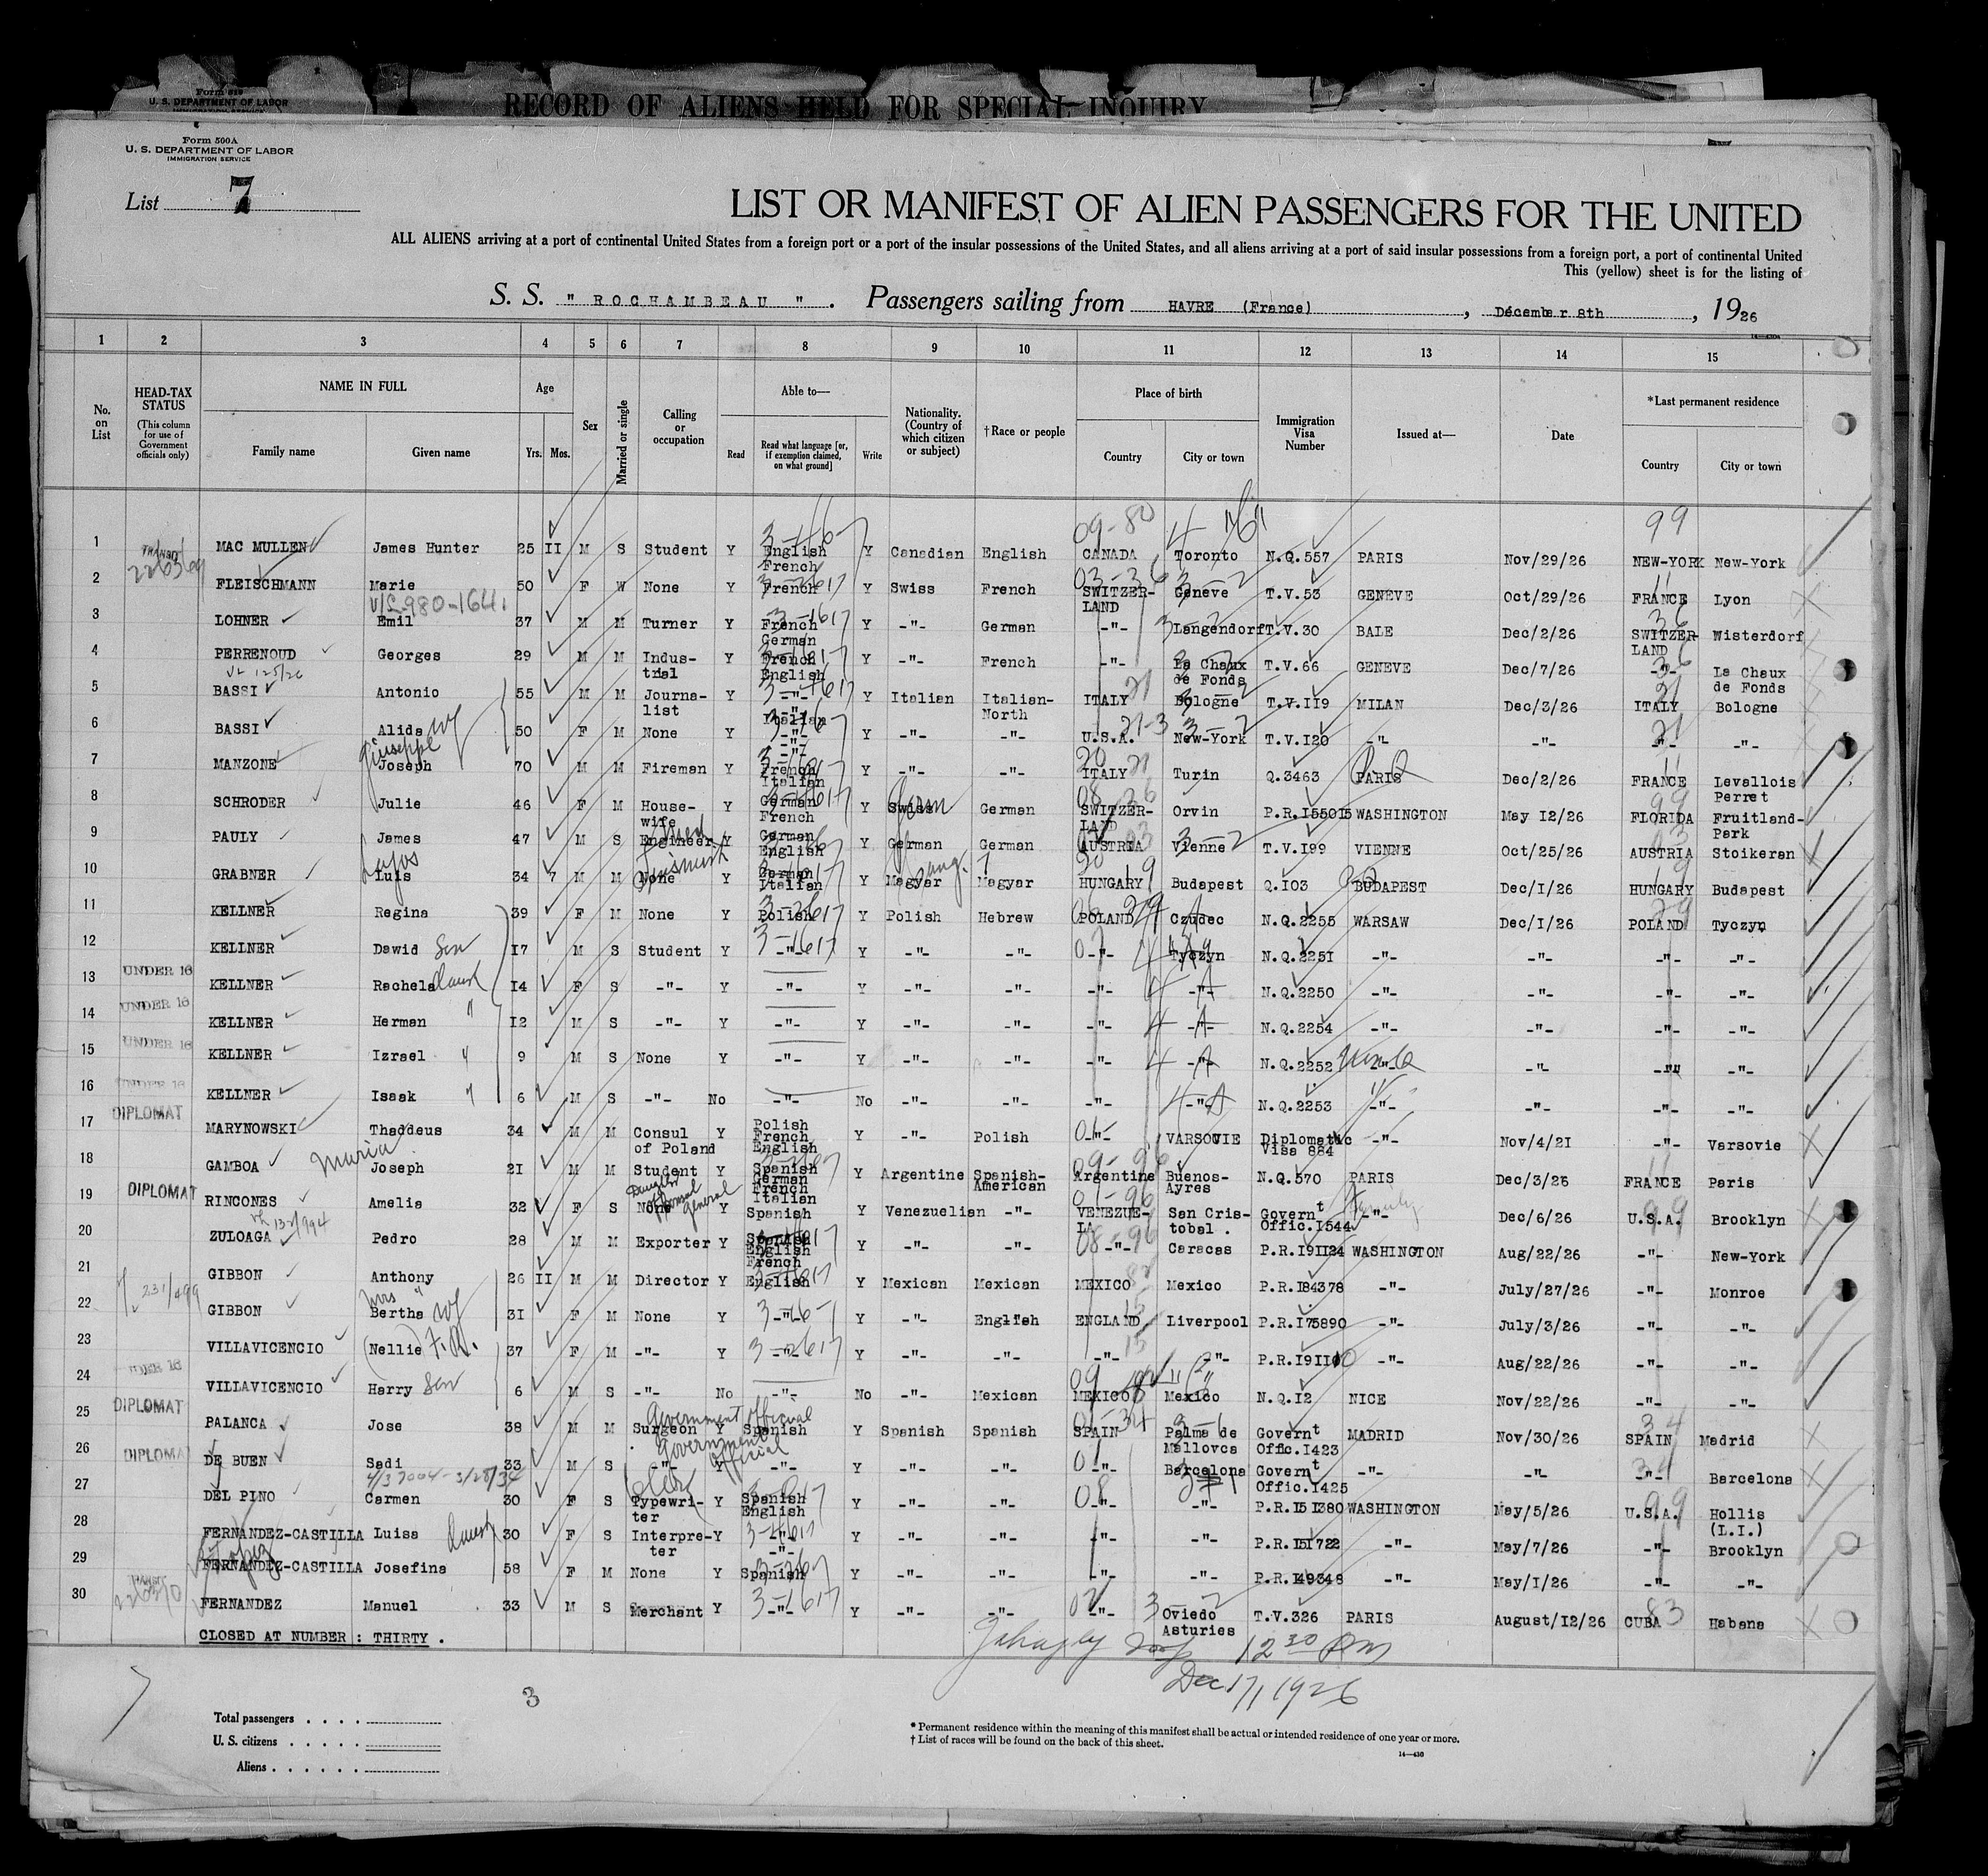 Form 500A
U. S. DEPARTMENT OF LABOR
IMMIGRATION SERVICE
RECORD OF ALIENS HELD FOR SPECIAL INQUIRY
Form 500A
U. S. DEPARTMENT OF LABOR
IMMIGRATION SERVICE
List 7
LIST OR MANIFEST OF ALIEN PASSENGERS FOR THE UNITED
ALL ALIENS arriving at a port of continental United States from a foreign port or a port of the insular possessions of the United States, and all aliens arriving at a port of said insular possessions from a foreign port, a port of continental United
This (yellow) sheet is for the listing of
S. S. " ROCHAMBEAU " . Passengers sailing from HAVRE (France) , Décember 8th , 1926
1 2 3 4 5 6 7 8 9 10 11 12 13 14 15
No. on List HEAD-TAX STATUS (This column for use of Government officials only) NAME IN FULL Family name Given name Age Yrs. Mos. Sex Married or single Calling or occupation Able to— Read Read what language [or, if exemption claimed, on what ground] Write Nationality. (Country of which citizen or subject) †Race or people Place of birth Country City or town Immigration Visa Number Issued at— Date *Last permanent residence Country City or town
1 TRANSIT MAC MULLEN James Hunter 25 II M S Student Y English French Y Canadian English CANADA Toronto N.Q.557 PARIS Nov/29/26 NEW-YORK New-York
2 FLEISCHMANN Marie 50 F W None Y French Y Swiss French SWITZER-LAND Genève T.V.53 GENEVE Oct/29/26 FRANCE Lyon
3 LOHNER Emil 37 M M Turner Y French German Y -"- German -"- Langendorf T.V.30 BALE Dec/2/26 SWITZER-LAND Wisterdorf
4 PERRENOUD Georges 29 M M Indus-trial Y French English Y -"- French -"- La Chaux de Fonds T.V.66 GENEVE Dec/7/26 -"- La Chaux de Fonds
5 BASSI Antonio 55 M M Journa-list Y -"- -"- Italian Y Italian Italian-North ITALY Bologne T.V.II9 MILAN Dec/3/26 ITALY Bologne
6 BASSI Alida Wf 50 F M None Y -"- -"- -"- Y -"- -"- U.S.A. New-York T.V.I20 -"- -"- -"- -"-
7 MANZONE Giuseppe Joseph 70 M M Fireman Y French Italian Y -"- -"- ITALY Turin Q.3463 PARIS Dec/2/26 FRANCE Levallois Perret
8 SCHRODER Julie 46 F M House-wife Y German French Y Swiss Germ German SWITZER-LAND Orvin P.R.I55015 WASHINGTON May I2/26 FLORIDA Fruitland-Park
9 PAULY James 47 M S Engineer Y German English Y German German AUSTRIA Vienne T.V.I99 VIENNE Oct/25/26 AUSTRIA Stoikeran
10 GRABNER Lajos Luis 34 7 M M None Y German Italian Y Magyar Magyar HUNGARY Budapest Q.I03 BUDAPEST Dec/I/26 HUNGARY Budapest
11 KELLNER Regina 39 F M None Y Polish Y Polish Hebrew POLAND Czudec N.Q.2255 WARSAW Dec/I/26 POLAND Tyczyn
12 KELLNER Dawid Son I7 M S Student Y -"- Y -"- -"- -"- Tyczyn N.Q.225I -"- -"- -"- -"-
13 UNDER 16 KELLNER Rachela Daugt I4 F S -"- Y -"- Y -"- -"- -"- -"- N.Q.2250 -"- -"- -"- -"-
14 UNDER 16 KELLNER Herman " I2 M S -"- Y -"- Y -"- -"- -"- -"- N.Q.2254 -"- -"- -"- -"-
15 UNDER 16 KELLNER Izrael " 9 M S None Y -"- Y -"- -"- -"- -"- N.Q.2252 -"- -"- -"- -"-
16 UNDER 16 KELLNER Isaak " 6 M S -"- No -"- No -"- -"- -"- -"- N.Q.2253 -"- -"- -"- -"-
17 DIPLOMAT MARYNOWSKI Thaddeus 34 M M Consul of Poland Y Polish French English Y -"- Polish -"- VARSOVIE Diplomatic Visa 884 -"- Nov/4/21 -"- Varsovie
18 GAMBOA Maria Joseph 2I M M Student Y Spanish German French Italian Y Argentine Spanish-American Argentine Buenos-Ayres N.Q.570 PARIS Dec/3/26 FRANCE Paris
19 DIPLOMAT RINCONES Amelia 32 F S None Daughter of Consul General Y Spanish Y Venezuelian -"- VENEZUE-LA San Cris-tobal . Governt Offic.I544 -"- Dec/6/26 U.S.A. Brooklyn
20 ZULOAGA Pedro 28 M M Exporter Y Spanish English French Y -"- -"- -"- Caracas P.R.I9II24 WASHINGTON Aug/22/26 -"- New-York
21 GIBBON Anthony 26 II M M Director Y English Y Mexican Mexican MEXICO Mexico P.R.I84378 -"- July/27/26 -"- Monroe
22 GIBBON Mrs Bertha Wf 3I F M None Y -"- Y -"- English ENGLAND Liverpool P.R.I75890 -"- July/3/26 -"- -"-
23 VILLAVICENCIO (Nellie) F.A. 37 F M -"- Y -"- Y -"- -"- -"- -"- P.R.I9II00 -"- Aug/22/26 -"- -"-
24 UNDER 16 VILLAVICENCIO Harry Son 6 M S -"- No -"- No -"- Mexican MEXICO Mexico N.Q.I2 NICE Nov/22/26 -"- -"-
25 DIPLOMAT PALANCA Jose 38 M M Surgeon Government official Y Spanish Y Spanish Spanish SPAIN Palma de Mallovca Governt Offic.I423 MADRID Nov/30/26 SPAIN Madrid
26 DIPLOMAT DE BUEN Sadi 33 M S -"- Government Official Y -"- Y -"- -"- -"- Barcelona Governt Offic.I425 -"- -"- -"- Barcelona
27 DEL PINO Carmen 30 F S Typewri-ter Y Spanish English Y -"- -"- -"- -"- P.R.I5I380 WASHINGTON May/5/26 U.S.A. Hollis (L.I.)
28 FERNANDEZ-CASTILLA Luisa Daugt 30 F S Interpre-ter Y -"- -"- Y -"- -"- -"- -"- P.R.I5I722 -"- May/7/26 -"- Brooklyn
29 FERNANDEZ-CASTILLA Josefina 58 F M None Y Spanish Y -"- -"- -"- -"- P.R.I49348 -"- May/I/26 -"- -"-
30 FERNANDEZ Manuel 33 M S Merchant Y -"- Y -"- -"- -"- Oviedo Asturies T.V.326 PARIS August/I2/26 CUBA Habana
CLOSED AT NUMBER : THIRTY .
12 30 PM
Dec 17, 1926
3
Total passengers
U. S. citizens
Aliens
* Permanent residence within the meaning of this manifest shall be actual or intended residence of one year or more.
† List of races will be found on the back of this sheet.